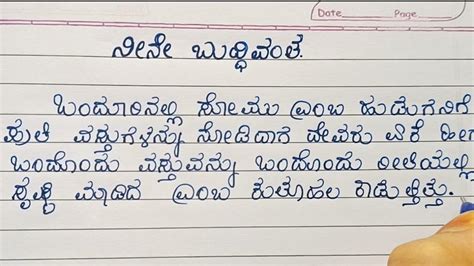 Date Page
ನೀನೇ ಬುದ್ಧಿವಂತ.
ಒಂದೂರಿನಲ್ಲಿ ಸೋಮು ಎಂಬ ಹುಡುಗನಿಗೆ
ಪ್ರತಿ ವಸ್ತುಗಳನ್ನು ನೋಡಿದಾಗ ದೇವರು ಏಕೆ ಹೀಗೆ
ಒಂದೊಂದು ವಸ್ತುವನ್ನು ಒಂದೊಂದು ರೀತಿಯಲ್ಲಿ
ಸೃಷ್ಟಿ ಮಾಡಿದ ಎಂಬ ಕುತೂಹಲ ಕಾಡುತ್ತಿತ್ತು.